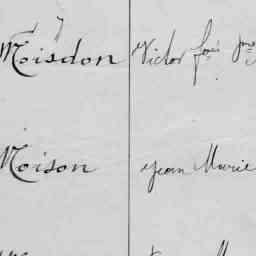 Moisdon Victor fois
Moison Jean Marie